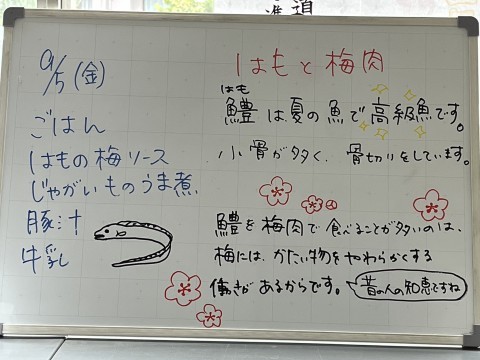 9/5(金)
ごはん
はもの梅ソース
じゃがいものうま煮
豚汁
牛乳
はもと梅肉
はも
鱧は夏の魚で高級魚です。
小骨が多く、骨切りをしています。
鱧を梅肉で食べることが多いのは、
梅には、かたい物をやわらかくする
働きがあるからです。
昔の人の知恵ですね